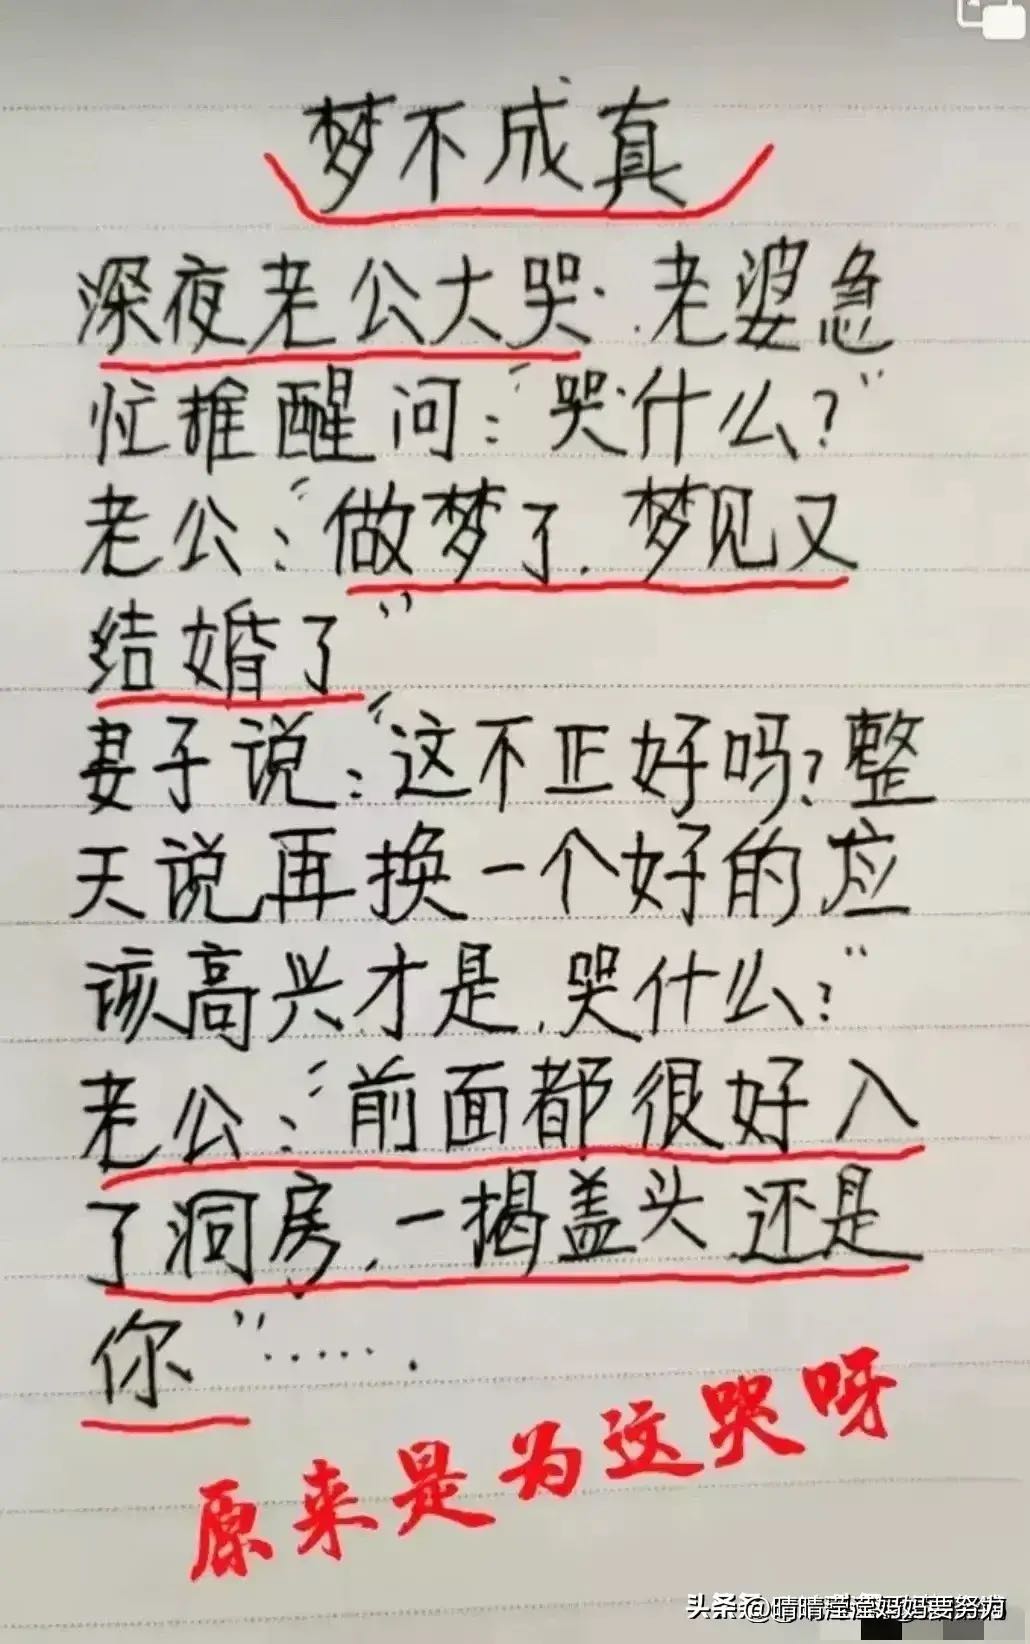 梦不成真
深夜老公大哭.老婆急
忙推醒问:"哭什么?"
老公:"做梦了.梦见又
结婚了"
妻子说:"这不正好吗?整
天说再换一个好的应
该高兴才是.哭什么?"
老公:"前面都很好入
了洞房,一揭盖头还是
你"……
原来是为这哭呀
头条 @晴晴滢滢妈妈要努力